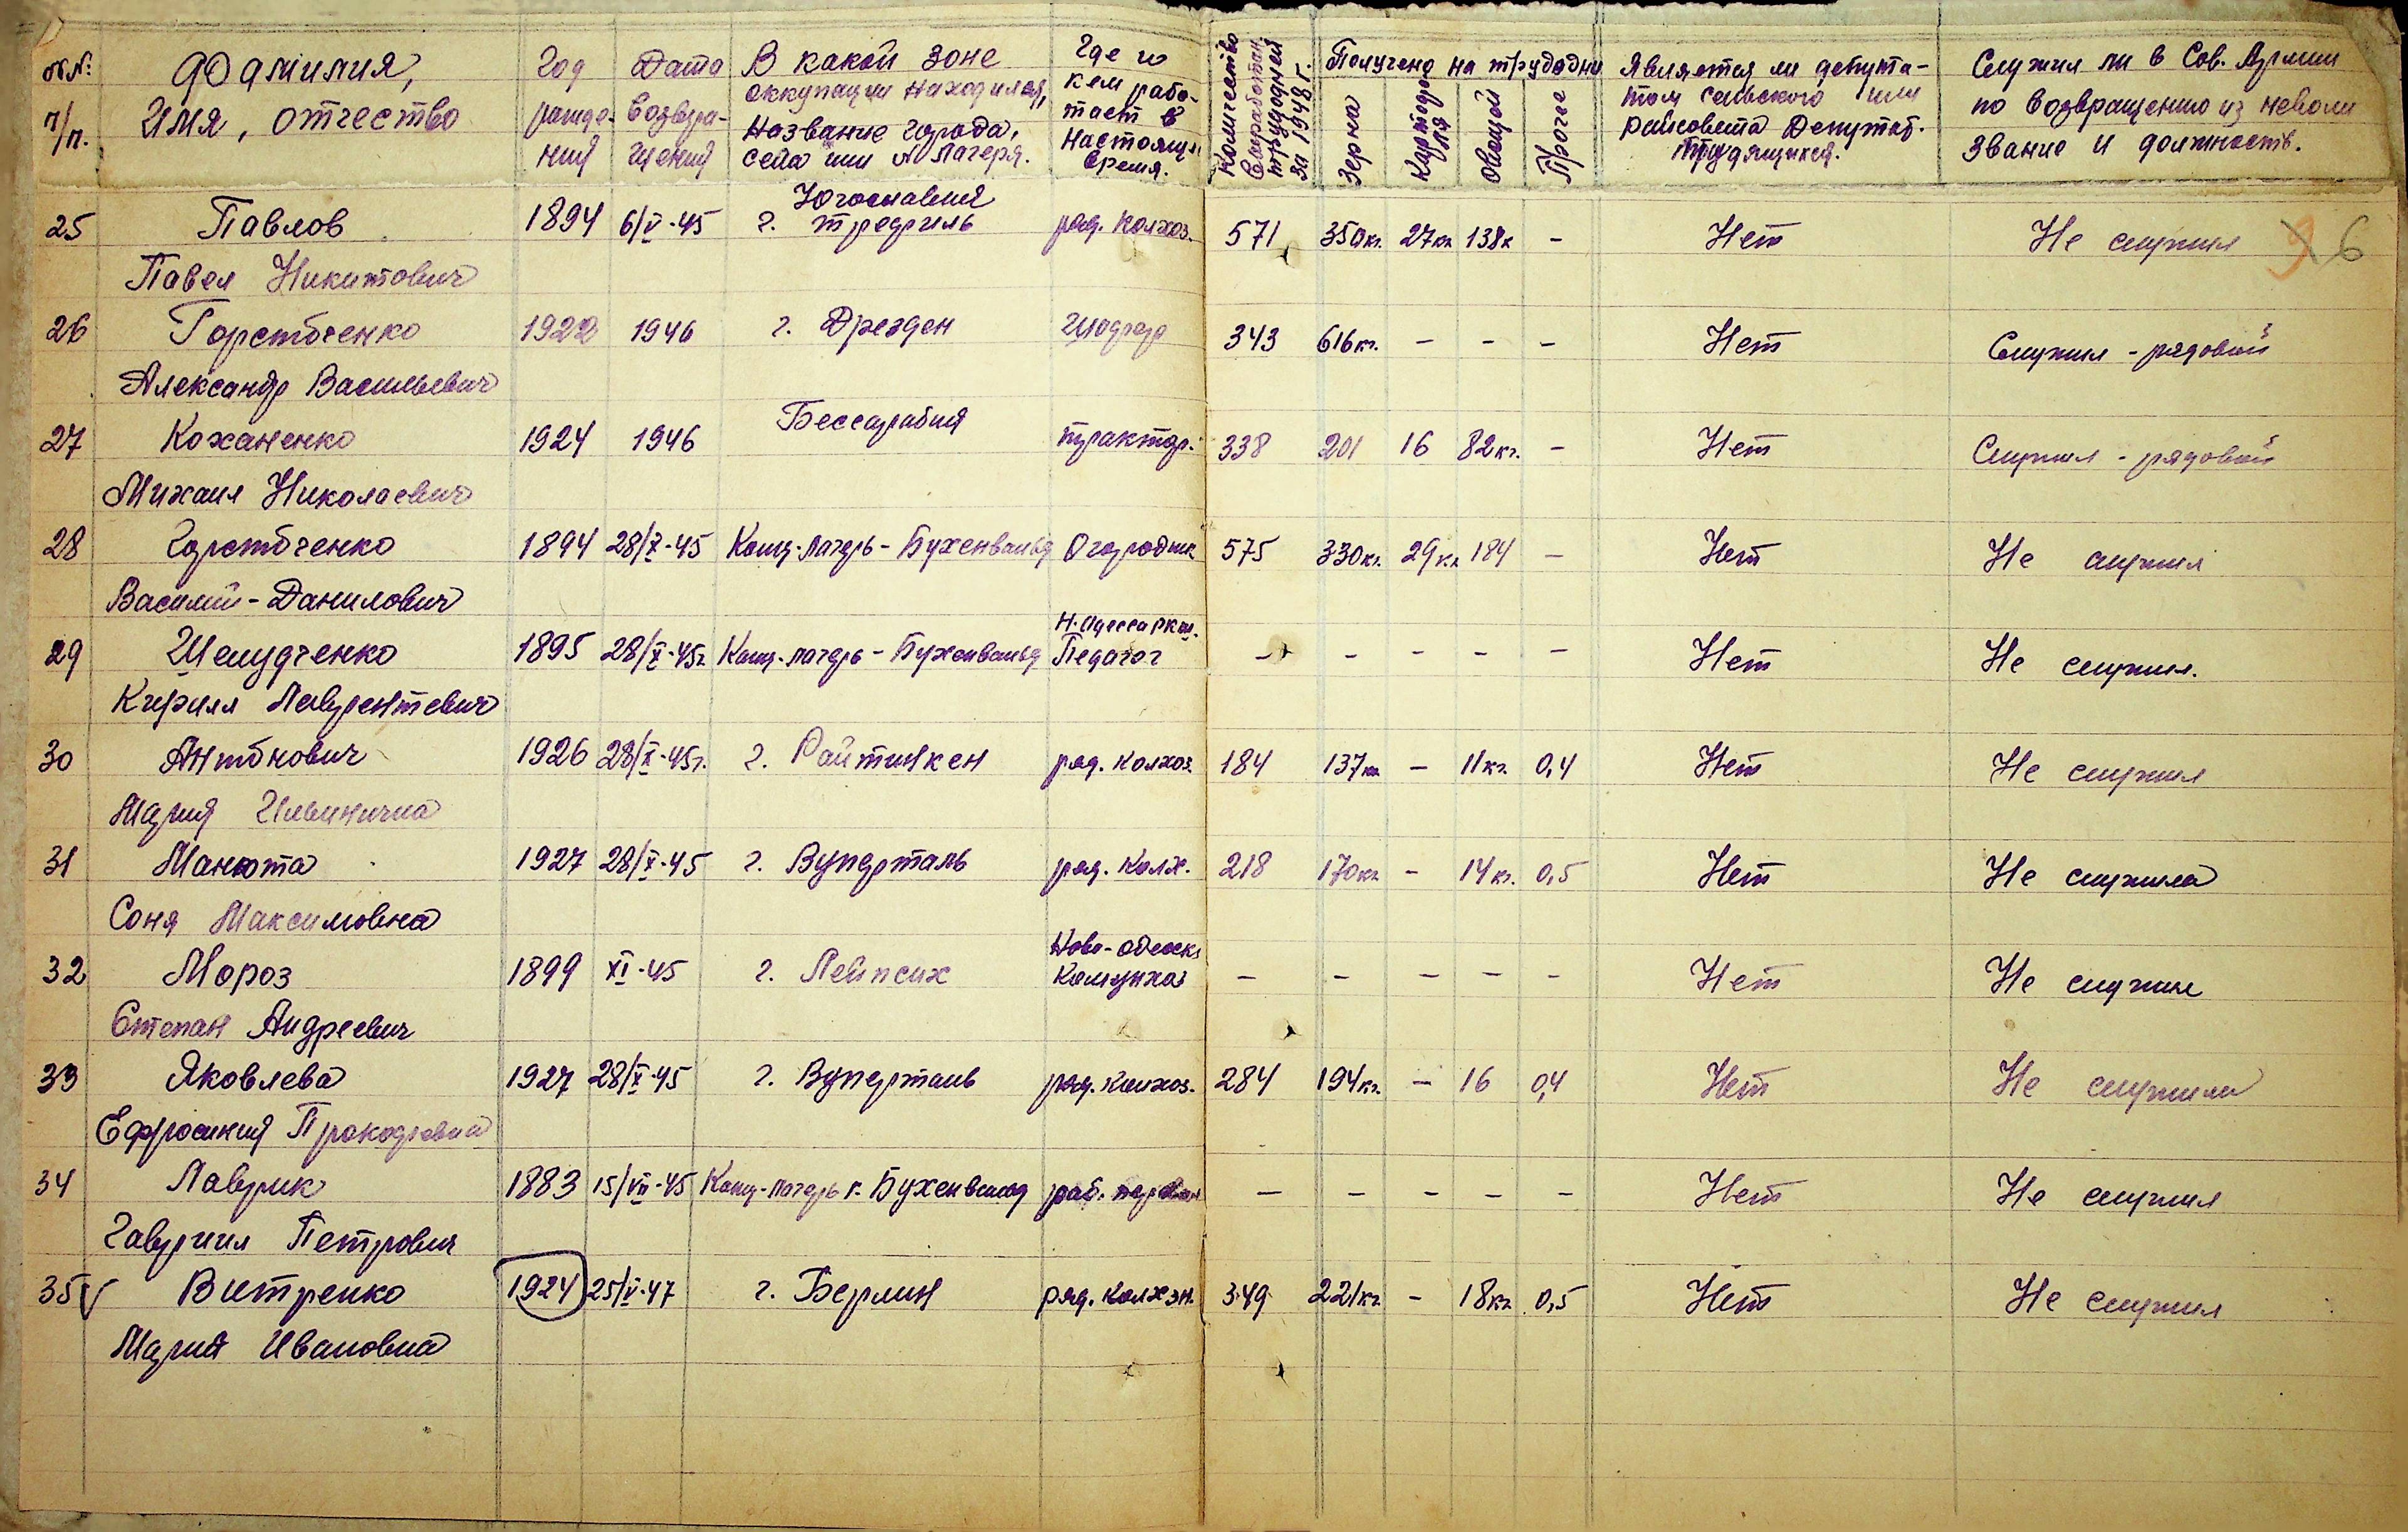 №№ п/п.
Фамилия,
Имя, отчество
Год рождения
Дата возвращения
В какой зоне
оккупации находился,
Название города,
села или № лагеря.
Где и
кем рабо-
тает в
настоящ.
время.
Количество
выработан.
трудодней
за 1948 г.
Получено на трудодни
Зерна
Картофеля
Овощей
Прочее
Является ли депута-
том сельского или
райсовета Депутат.
трудящихся.
Служил ли в Сов. Армии
по возвращению из неволи
звание и должность.
Югославия
25 Павлов 1894 6/V-45 г. рад. колхоз. 571 350кг. 27кг 138к - Нет Не служил 6
Павел Никитович
26 Горстбченко 1922 1946 г. Дрезден 343 616кг. - - - Нет Служил - рядовой
Александр Васильевич
Бессарабия
27 Коханенко 1924 1946 трактор. 338 201 16 82кг. - Нет Служил - рядовой
Михаил Николаевич
28 Горстбченко 1894 28/X-45 Конц-лагерь - Бухенвальд Огородник 575 330кг. 29кг 184 - Нет Не служил
Василий - Данилович
Н.Одесса
29 Шелудченко 1895 28/X-45г. Конц-лагерь - Бухенвальд Педагог - - - - - Нет Не служил.
Кирилл Лаврентевич
30 Антонович 1926 28/X-45г. г. Райтинкен ряд. колхоз 184 137кг - 11кг. 0,4 Нет Не служил
Мария Ильинична
31 Манюта 1927 28/X-45 г. Вуперталь ряд. колх. 218 170кг - 14кг. 0,5 Нет Не служила
Соня Максимовна
Ново-Одесск.
32 Мороз 1899 XI-45 г. Лейпсих Комунхоз - - - - - Нет Не служил
Степан Андреевич
33 Яковлева 1927 28/X-45 г. Вуперталь ряд. колхоз. 284 194кг. - 16 0,4 Нет Не служила
Ефросиния Прокофевна
34 Лаврик 1883 15/VII-45 Конц-лагерь г. Бухенвальд раб. - - - - - Нет Не служил
Гавриил Петрович
35 V Витренко 1924 25/V-47 г. Берлин ряд. колхзн. 349 221кг. - 18кг 0,5 Нет Не служил
Мария Ивановна